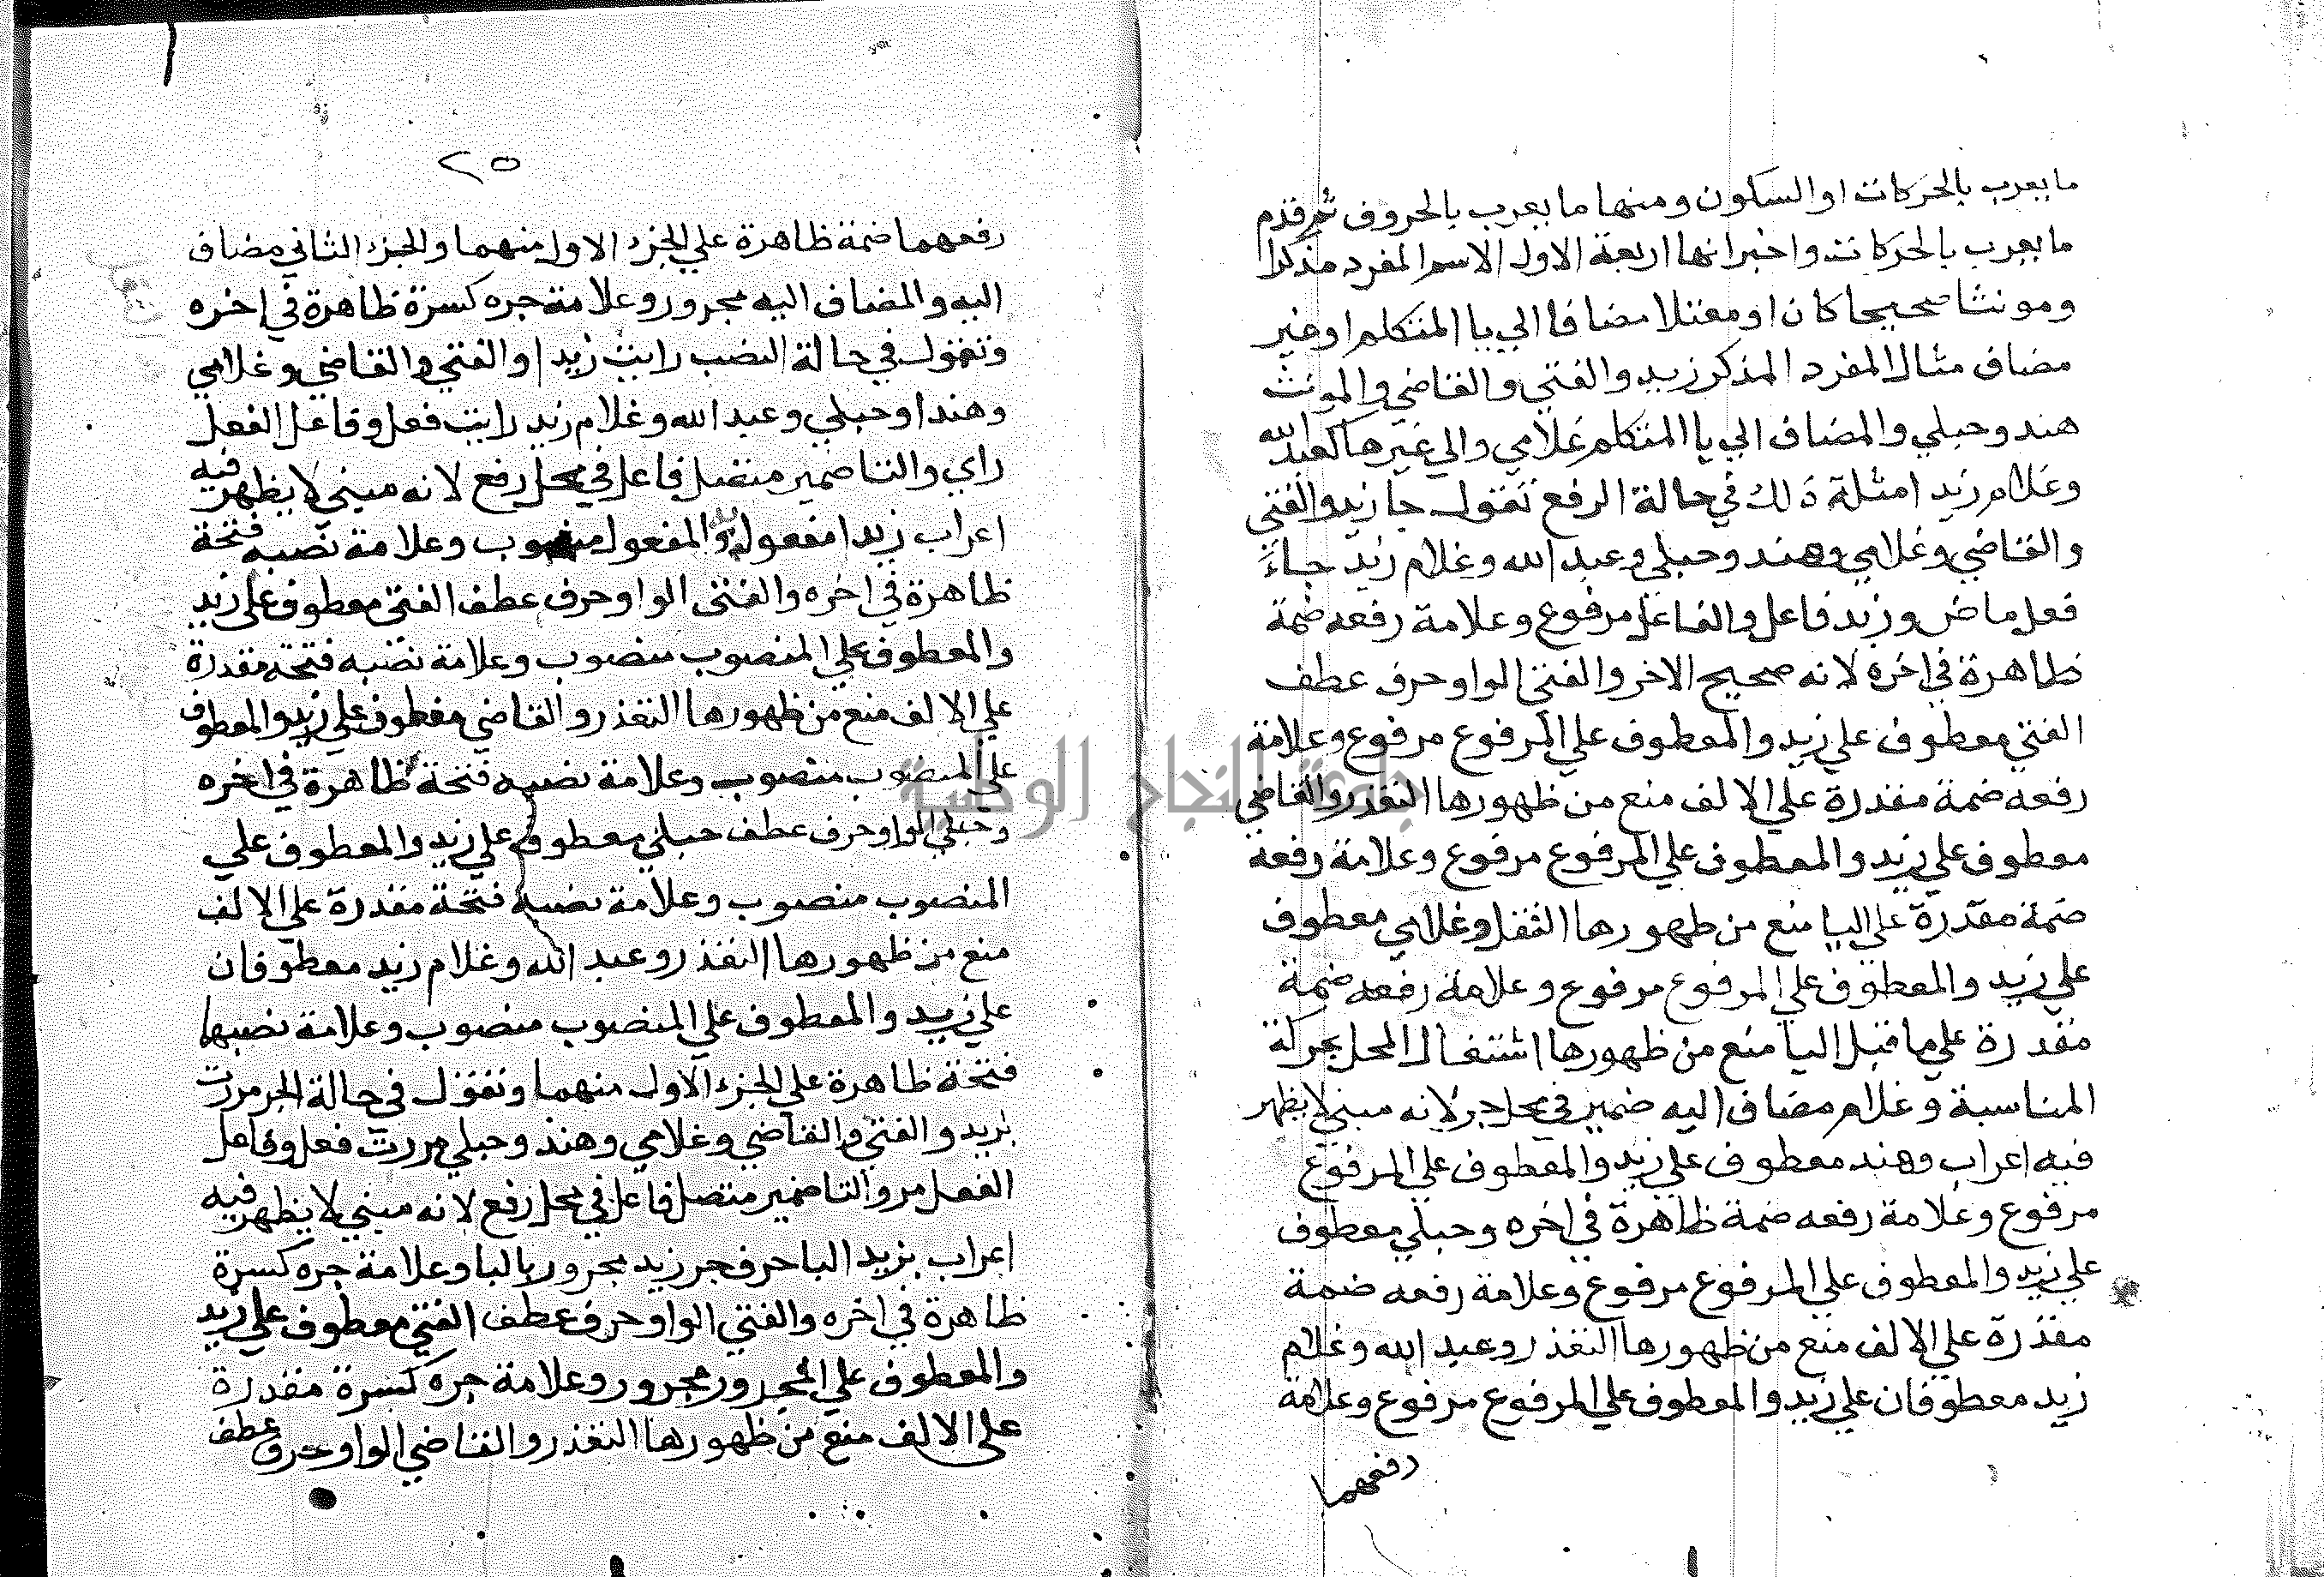 ما يعرب بالحركات او السكون ومنها ما يعرب بالحروف ثم قدم
ما يعرب بالحركات واخبر انها اربعة الاول الاسم المفرد مذكرا
ومونثا صحيحا كان او معتلا مضافا الي يا المتكلم او غير
مضاف مثال المفرد المذكر زيد والفتي والقاضي والمونث
هند وحبلي والمضاف الي يا المتكلم غلامي والي غيرها كعبد الله
وغلام زيد امثلة ذلك في حالة الرفع تقول جا زيد والفتي
والقاضي وغلامي وهند وحبلي وعبد الله وغلام زيد جاء
فعل ماض وزيد فاعل والفاعل مرفوع وعلامة رفعه ضمة
ظاهرة في اخره لانه صحيح الاخر والفتي الواو حرف عطف
الفتي معطوف علي زيد والمعطوف علي المرفوع مرفوع وعلامة
رفعه ضمة مقدرة علي الالف منع من ظهورها التعذر والقاضي
معطوف علي زيد والمعطوف علي المرفوع مرفوع وعلامة رفعه
ضمة مقدرة علي اليا منع من ظهورها الثقل وغلامي معطوف
علي زيد والمعطوف علي المرفوع مرفوع وعلامة رفعه ضمة
مقدرة علي ما قبل اليا منع من ظهورها اشتغال المحل بحركة
المناسبة وغلام مضاف اليه ضمير في محل جر لانه مبني لا يظهر
فيه اعراب وهند معطوف علي زيد والمعطوف علي المرفوع
مرفوع وعلامة رفعه ضمة ظاهرة في اخره وحبلي معطوف
علي زيد والمعطوف علي المرفوع مرفوع وعلامة رفعه ضمة
مقدرة علي الالف منع من ظهورها التعذر وعبد الله وغلام
زيد معطوفان علي زيد والمعطوف علي المرفوع مرفوع وعلامة
رفعهما
٢٥
رفعهما ضمة ظاهرة علي الجزء الاول منهما والجزء الثاني مضاف
اليه والمضاف اليه مجرور وعلامة جره كسرة ظاهرة في اخره
وتقول في حالة النصب رايت زيدا والفتي والقاضي وغلامي
وهندا وحبلي وعبد الله وغلام زيد رايت فعل وفاعل الفعل
راي والتا ضمير متصل فاعل في محل رفع لانه مبني لا يظهر فيه
اعراب زيدا مفعول والمفعول منصوب وعلامة نصبه فتحة
ظاهرة في اخره والفتي الواو حرف عطف الفتي معطوف علي زيد
والمعطوف علي المنصوب منصوب وعلامة نصبه فتحة مقدرة
علي الالف منع من ظهورها التعذر والقاضي معطوف علي زيد والمعطوف
علي المنصوب منصوب وعلامة نصبه فتحة ظاهرة في اخره
وحبلي الواو حرف عطف حبلي معطوف علي زيد والمعطوف علي
المنصوب منصوب وعلامة نصبه فتحة مقدرة علي الالف
منع من ظهورها التعذر وعبد الله وغلام زيد معطوفان
علي زيد والمعطوف علي المنصوب منصوب وعلامة نصبها
فتحة ظاهرة علي الجزء الاول منهما وتقول في حالة الجر مررت
بزيد والفتي والقاضي وغلامي وهند وحبلي مررت فعل وفاعل
الفعل مر والتا ضمير متصل فاعل في محل رفع لانه مبني لا يظهر فيه
اعراب بزيد البا حرف جر زيد مجرور بالبا وعلامة جره كسرة
ظاهرة في اخره والفتي الواو حرف عطف الفتي معطوف علي زيد
والمعطوف علي المجرور مجرور وعلامة جره كسرة مقدرة
علي الالف منع من ظهورها التعذر والقاضي الواو حرف عطف
جامعة النجاح الوطنية